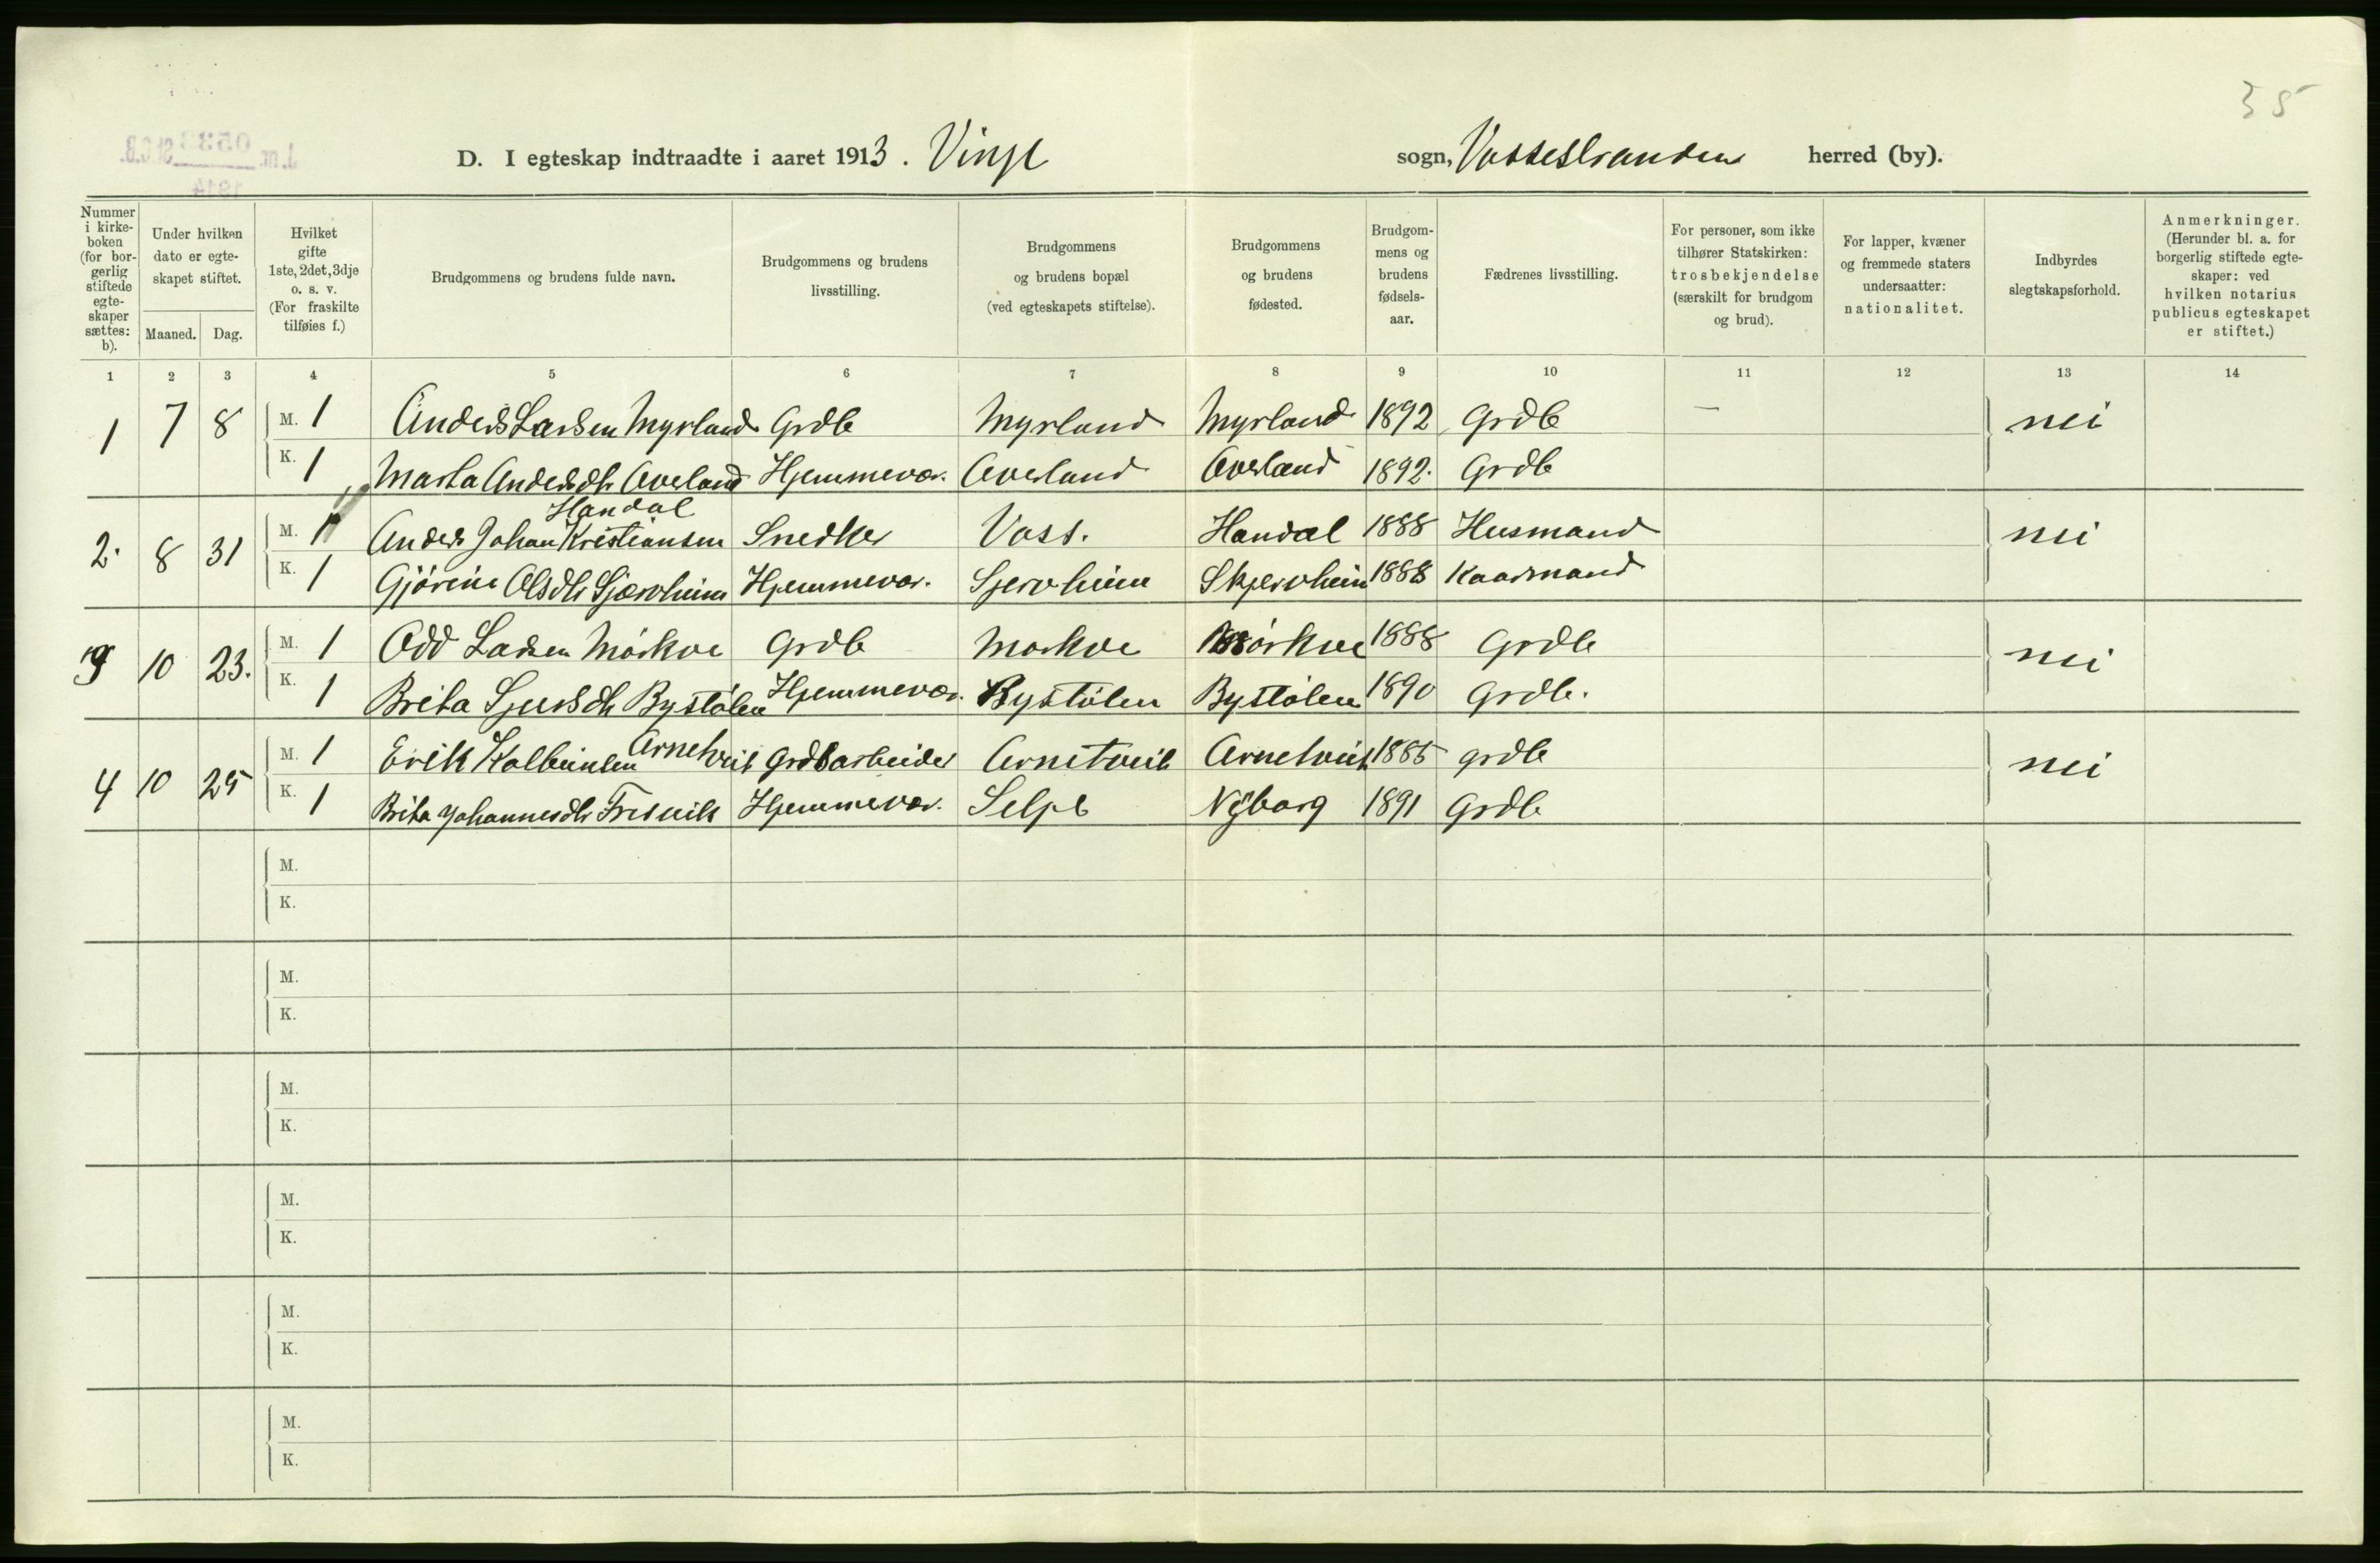 35
D. I egteskap indtraadte i aaret 1913. Vinje sogn, Vossestranden herred (by).
Nummer i kirke-boken (for bor-gerlig stiftede egte-skaper sættes: b).
Under hvilken dato er egte-skapet stiftet.
Maaned. Dag.
Hvilket gifte 1ste, 2det, 3dje o. s. v. (For fraskilte tilføies f.)
Brudgommens og brudens fulde navn.
Brudgommens og brudens livsstilling.
Brudgommens og brudens bopæl (ved egteskapets stiftelse).
Brudgommens og brudens fødested.
Brudgom-mens og brudens fødsels-aar.
Fædrenes livsstilling.
For personer, som ikke tilhører Statskirken: trosbekjendelse (særskilt for brudgom og brud).
For lapper, kvæner og fremmede staters undersaatter: nationalitet.
Indbyrdes slegtskapsforhold.
Anmerkninger. (Herunder bl. a. for borgerlig stiftede egte-skaper: ved hvilken notarius publicus egteskapet er stiftet.)
1 2 3 4 5 6 7 8 9 10 11 12 13 14
1 7 8 M. 1 Anders Larsen Myrland Grdb Myrland Myrland 1892 Grdb — nei
K. 1 Marta Andersdtr Øverland Hjemmevær. Øverland Øverland 1892. Grdb
Handal
2. 8 31 M. 1 Anders Johan Kristiansen Snedker Voss. Handal 1888 Husmand nei
K. 1 Gjørine Olsdtr Sjærvheim Hjemmevær. Sjervheim Skjervheim 1888 Kaarmand
3 10 23. M. 1 Odd Larsen Mørkve Grdb Mørkve Mørkve 1888 Grdb nei
K. 1 Brita Sjursdtr Bystølen Hjemmevær. Bystølen Bystølen 1890 Grdb.
4 10 25 M. 1 Erik Kolbeinsen Arnetveit Grdbarbeider Arnetveit Arnetveit 1885 grdb nei
K. 1 Brita Johannesdtr Hjemmevær. Selje Nÿborg 1891 Grdb
M.
K.
M.
K.
M.
K.
M.
K.
M.
K.
M.
K.